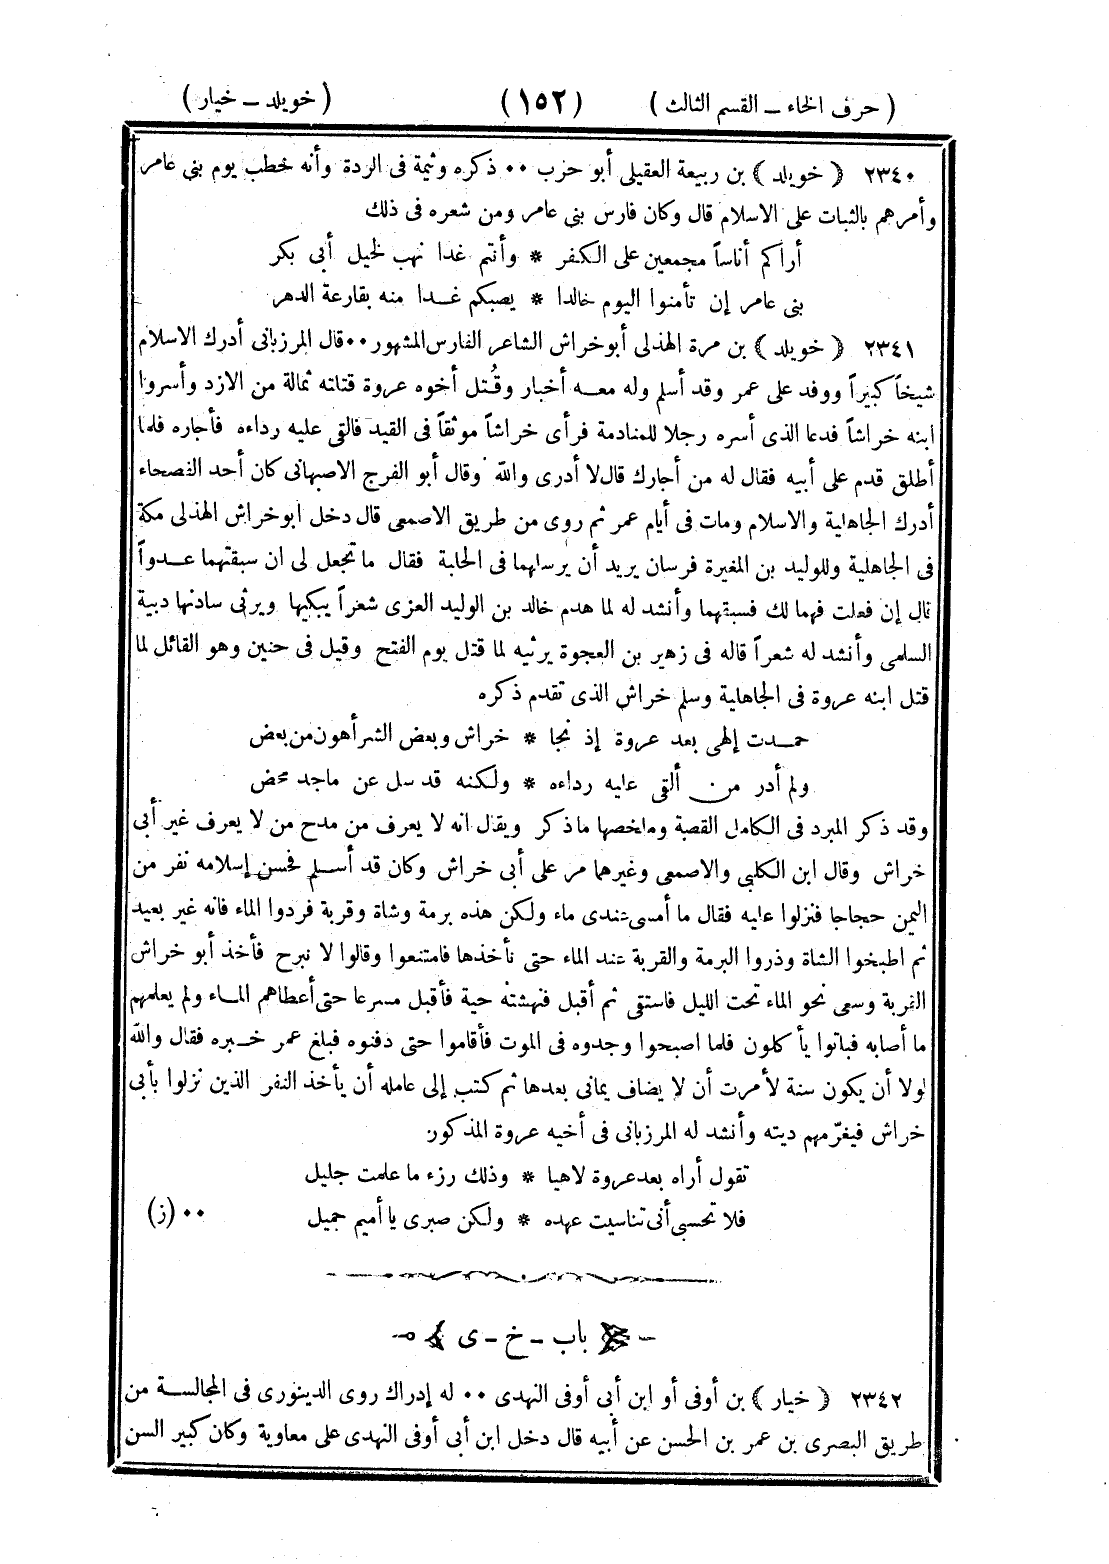 (حرف الخاء ــ القسم الثالث) (١٥٢) (خويلد ــ خيار)
٢٣٤٠ (خويلد) بن ربيعة العقيلى أبو حزب ٠٠ ذكره وثيمة فى الردة وأنه خطب يوم بني عامر
وأمرهم بالثبات على الاسلام قال وكان فارس بنى عامر ومن شعره فى ذلك
أراكم أناساً مجمعين على الكفر * وأنتم غدا نهب لخيل أبى بكر
بنى عامر إن تأمنوا اليوم خالدا * يصبكم غدا منه بقارعة الدهر
٢٣٤١ (خويلد) بن مرة الهذلى أبو خراش الشاعر الفارس المشهور ٠٠ قال المرزبانى أدرك الاسلام
شيخاً كبيراً ووفد على عمر وقد أسلم وله معه أخبار وقُتل أخوه عروة قتلته ثمالة من الازد وأسروا
ابنه خراشاً فدعا الذى أسره رجلا للمنادمة فرأى خراشاً موثقاً فى القيد فالقى عليه رداءه فأجاره فلما
أطلق قدم على أبيه فقال له من أجارك قال لا أدرى والله وقال أبو الفرج الاصبهانى كان أحد الفصحاء
أدرك الجاهلية والاسلام ومات فى أيام عمر ثم روى من طريق الاصمعى قال دخل ابو خراش الهذلى مكة
فى الجاهلية وللوليد بن المغيرة فرسان يريد أن يرسلهما فى الحلبة فقال ما تجعل لى ان سبقتهما عدواً
قال إن فعلت فهما لك فسبقهما وأنشد له لما هدم خالد بن الوليد العزى شعراً يبكيها ويرثى سادنها دبية
السلمى وأنشد له شعراً قاله فى زهير بن العجوة يرثيه لما قتل يوم الفتح وقيل فى حنين وهو القائل لما
قتل ابنه عروة فى الجاهلية وسلم خراش الذى تقدم ذكره
حمدت إلهى بعد عروة إذ نجا * خراش وبعض الشر أهون من بعض
ولم أدر من ألقى عليه رداءه * ولكنه قد سل عن ماجد محض
وقد ذكر المبرد فى الكامل القصة وملخصها ما ذكر ويقال انه لا يعرف من مدح من لا يعرف غير أبى
خراش وقال ابن الكلبى والاصمعى وغيرهما مر على أبى خراش وكان قد أسلم فحسن إسلامه نفر من
اليمن حجاجا فنزلوا عليه فقال ما أمسى عندى ماء ولكن هذه برمة وشاة وقربة فردوا الماء فانه غير بعيد
ثم اطبخوا الشاة وذروا البرمة والقربة عند الماء حتى نأخذها فامتنعوا وقالوا لا نبرح فأخذ أبو خراش
القربة وسعى نحو الماء تحت الليل فاستقى ثم أقبل فنهشته حية فأقبل مسرعا حتى أعطاهم الماء ولم يعلمهم
ما أصابه فباتوا يأكلون فلما اصبحوا وجدوه فى الموت فأقاموا حتى دفنوه فبلغ عمر خبره فقال والله
لولا أن يكون سنة لأمرت أن لا يضاف يمانى بعدها ثم كتب إلى عامله أن يأخذ النفر الذين نزلوا بأبى
خراش فيغرّمهم ديته وأنشد له المرزبانى فى أخيه عروة المذكور
تقول أراه بعد عروة لاهيا * وذلك رزء ما علمت جليل
فلا تحسبى أنى تناسيت عهده * ولكن صبرى يا أميم جميل ٠٠ (ز)
باب ـ خ ـ ى
٢٣٤٢ (خيار) بن أوفى أو ابن أبى أوفى النهدى ٠٠ له إدراك روى الدينورى فى المجالسة من
طريق البصرى بن عمر بن الحسن عن أبيه قال دخل ابن أبى أوفى النهدى على معاوية وكان كبير السن